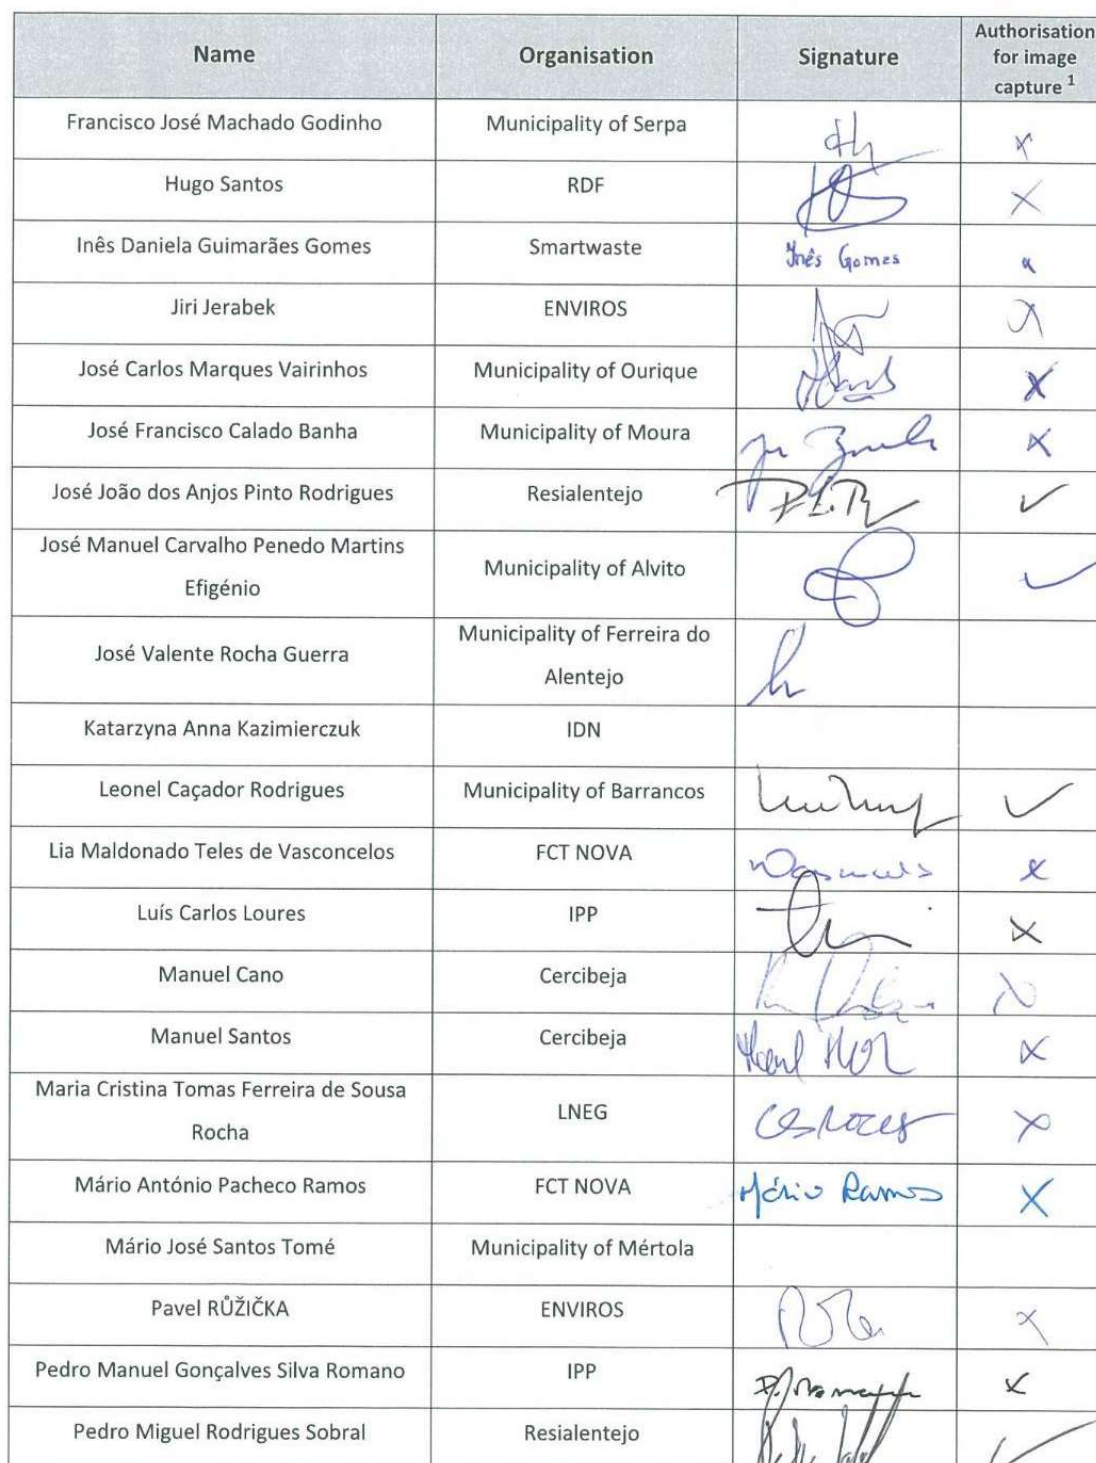 Name Organisation Signature Authorisation
for image
capture 1
Francisco José Machado Godinho Municipality of Serpa
Hugo Santos RDF
Inês Daniela Guimarães Gomes Smartwaste Inês Gomes
Jiri Jerabek ENVIROS
José Carlos Marques Vairinhos Municipality of Ourique
José Francisco Calado Banha Municipality of Moura
José João dos Anjos Pinto Rodrigues Resialentejo
José Manuel Carvalho Penedo Martins
Efigénio Municipality of Alvito
José Valente Rocha Guerra Municipality of Ferreira do
Alentejo
Katarzyna Anna Kazimierczuk IDN
Leonel Caçador Rodrigues Municipality of Barrancos
Lia Maldonado Teles de Vasconcelos FCT NOVA
Luís Carlos Loures IPP
Manuel Cano Cercibeja
Manuel Santos Cercibeja
Maria Cristina Tomas Ferreira de Sousa
Rocha LNEG
Mário António Pacheco Ramos FCT NOVA Mário Ramos
Mário José Santos Tomé Municipality of Mértola
Pavel RŮŽIČKA ENVIROS
Pedro Manuel Gonçalves Silva Romano IPP
Pedro Miguel Rodrigues Sobral Resialentejo